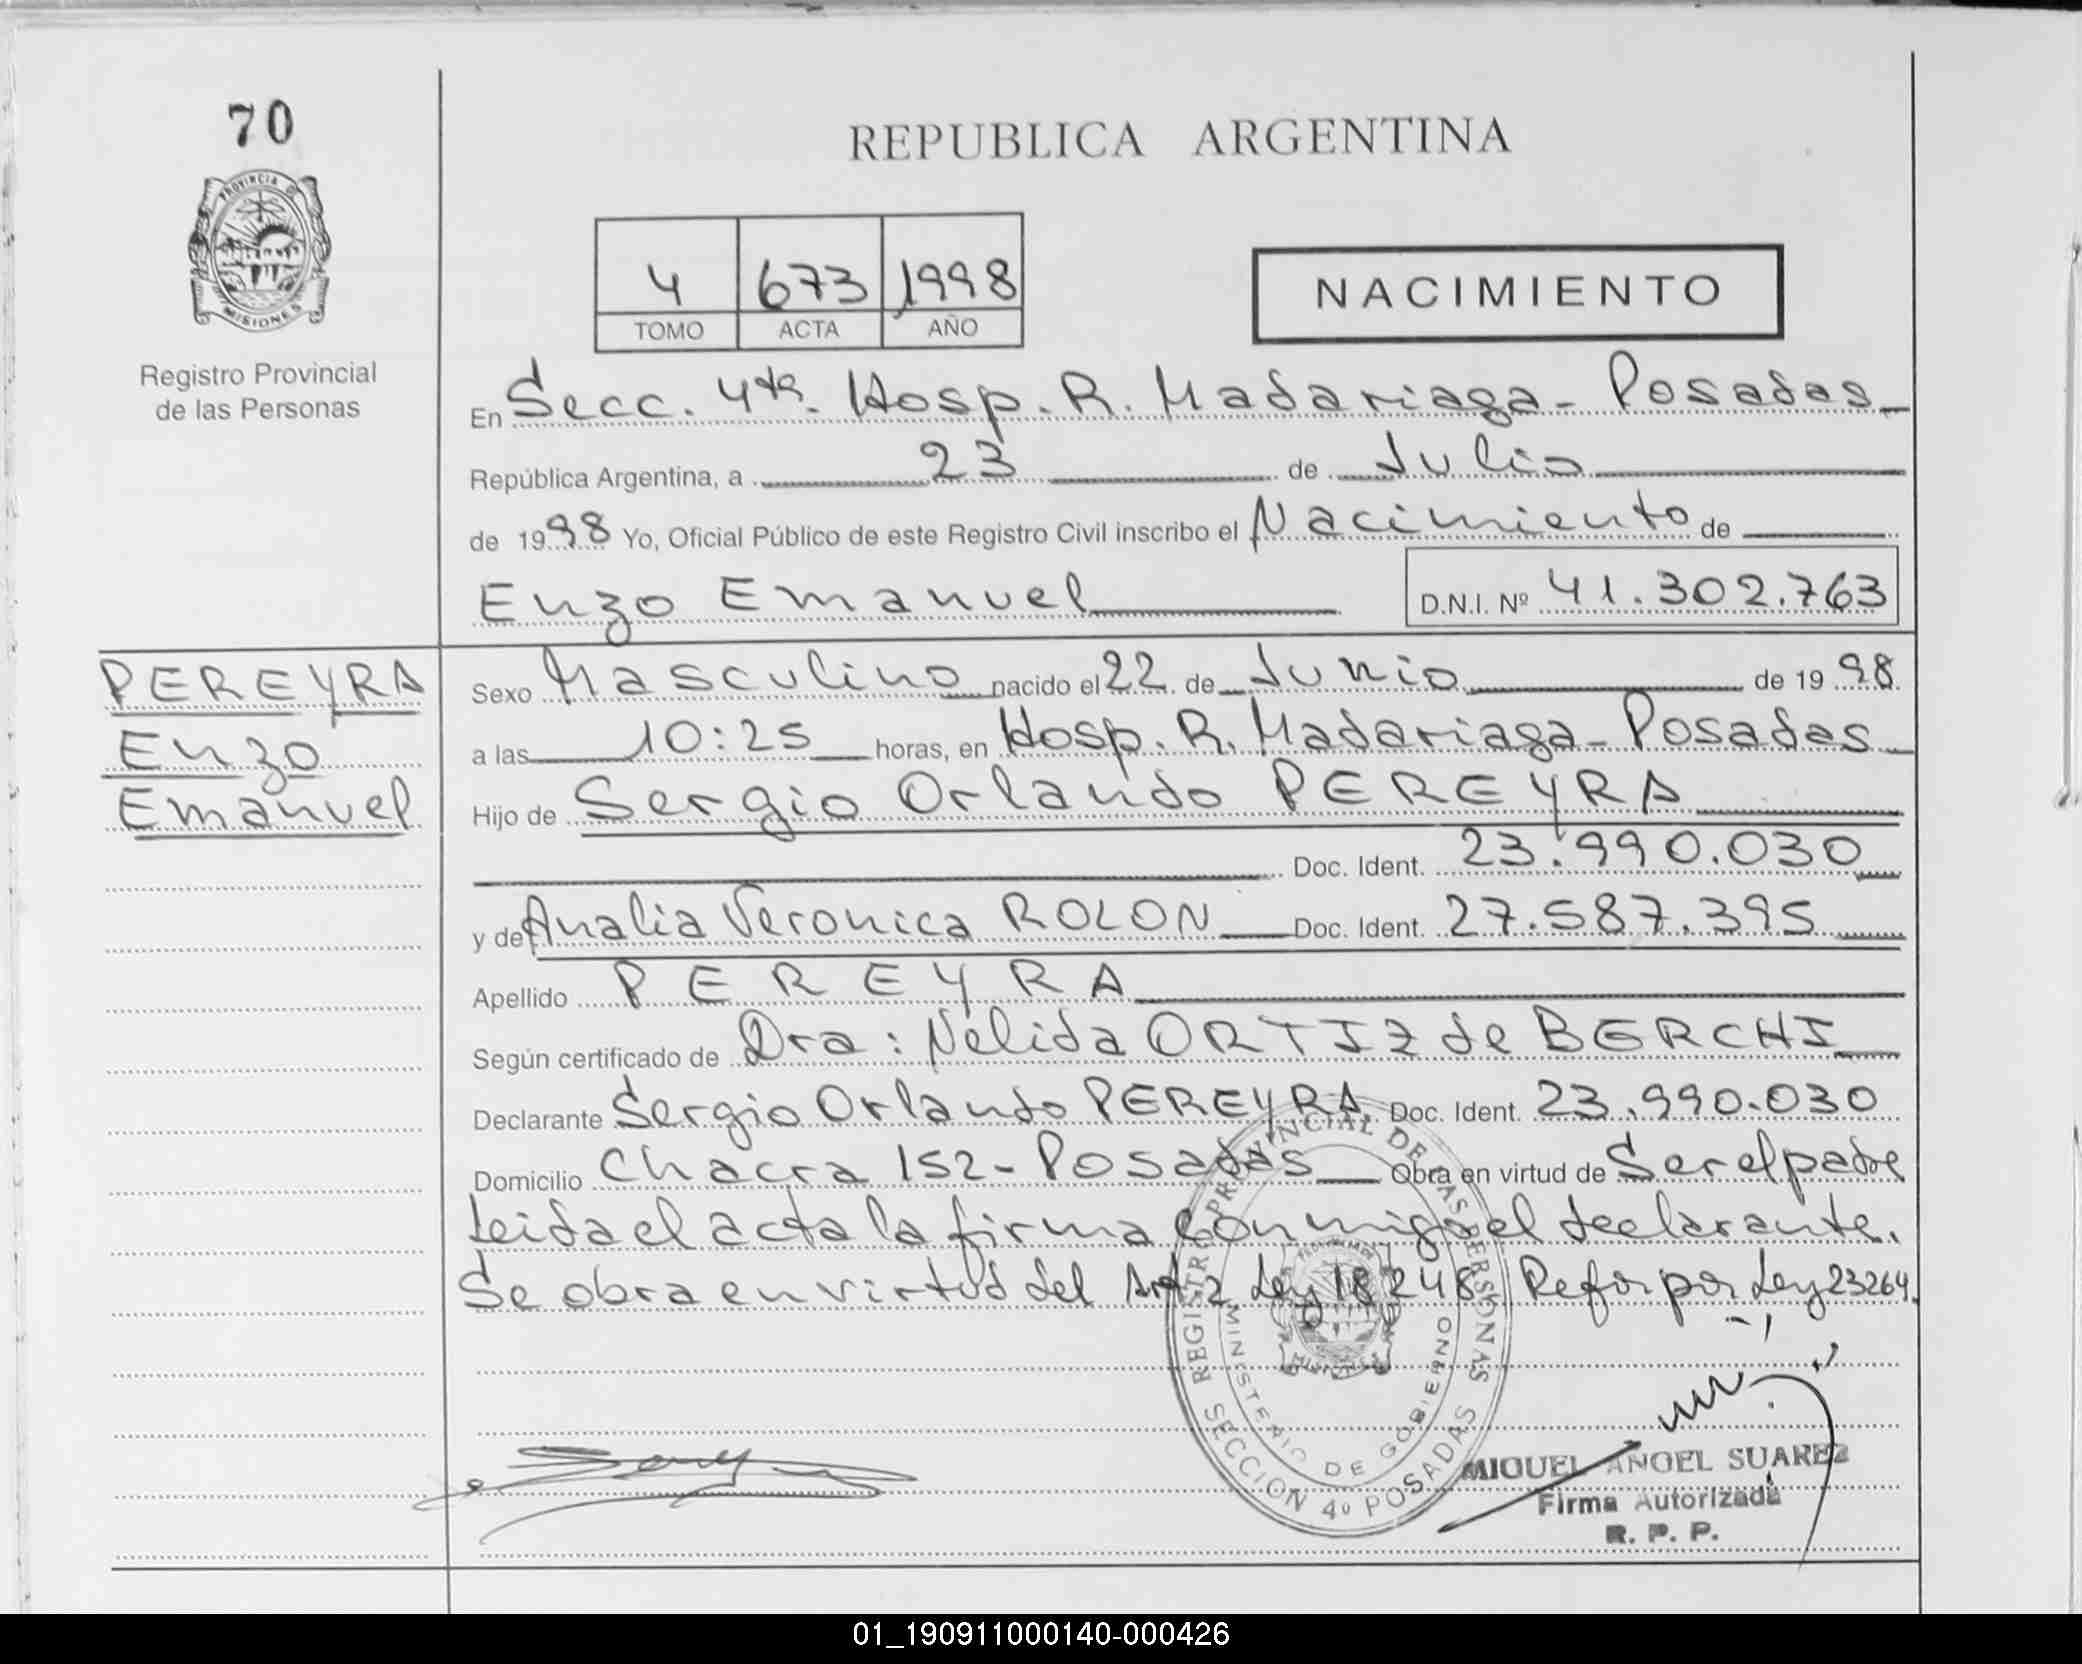 70
PROVINCIA DE
MISIONES
Registro Provincial
de las Personas
REPUBLICA ARGENTINA
4 673 1998
TOMO ACTA AÑO
NACIMIENTO
En Secc. 4ta. Hosp. R. Madariaga - Posadas
República Argentina, a 23 de Julio
de 1998 Yo, Oficial Público de este Registro Civil inscribo el Nacimiento de
Enzo Emanuel D.N.I. Nº 41.302.763
PEREYRA
Enzo
Emanuel
Sexo Masculino nacido el 22 de Junio de 1998
a las 10:25 horas, en Hosp. R. Madariaga - Posadas
Hijo de Sergio Orlando PEREYRA
Doc. Ident. 23.990.030
y de Analia Veronica ROLON Doc. Ident. 27.587.395
Apellido PEREYRA
Según certificado de Dra: Nelida ORTIZ de BERCHI
Declarante Sergio Orlando PEREYRA Doc. Ident. 23.990.030
Domicilio Chacra 152 - Posadas Obra en virtud de Ser el padre
Leida el acta la firma con migo el declarante.
Se obra en virtud del Art 2 Ley 18248 Refor por Ley 23264.
REGISTRO PROVINCIAL DE LAS PERSONAS
MINISTERIO DE GOBIERNO
SECCION 4º POSADAS
MIGUEL ANGEL SUAREZ
Firma Autorizada
R. P. P.
01_190911000140-000426